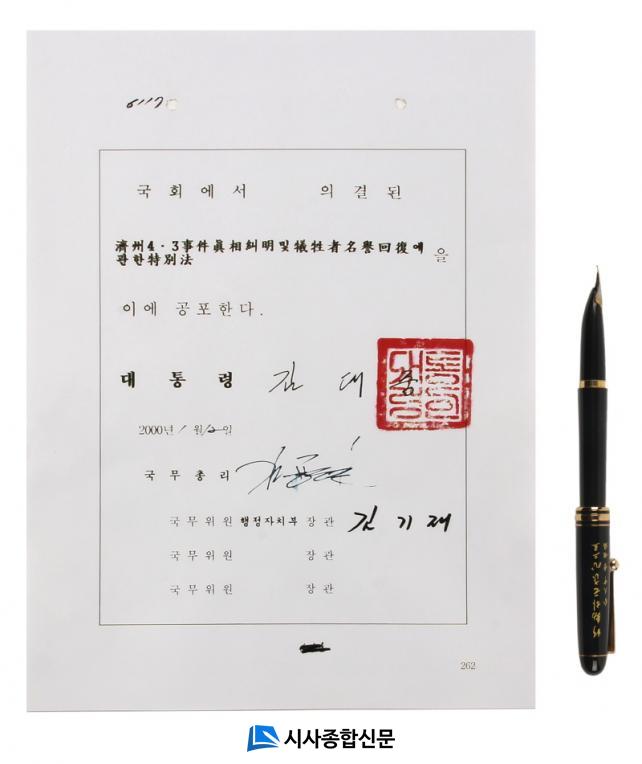 6117
국회에서 의결된
濟州4·3事件眞相糾明및犧牲者名譽回復에
관한特別法 을
이에 공포한다.
대통령 김대중
2000년 1월 12일
국무총리
국무위원 행정자치부 장관 김기재
국무위원 장관
국무위원 장관
262
시사종합신문